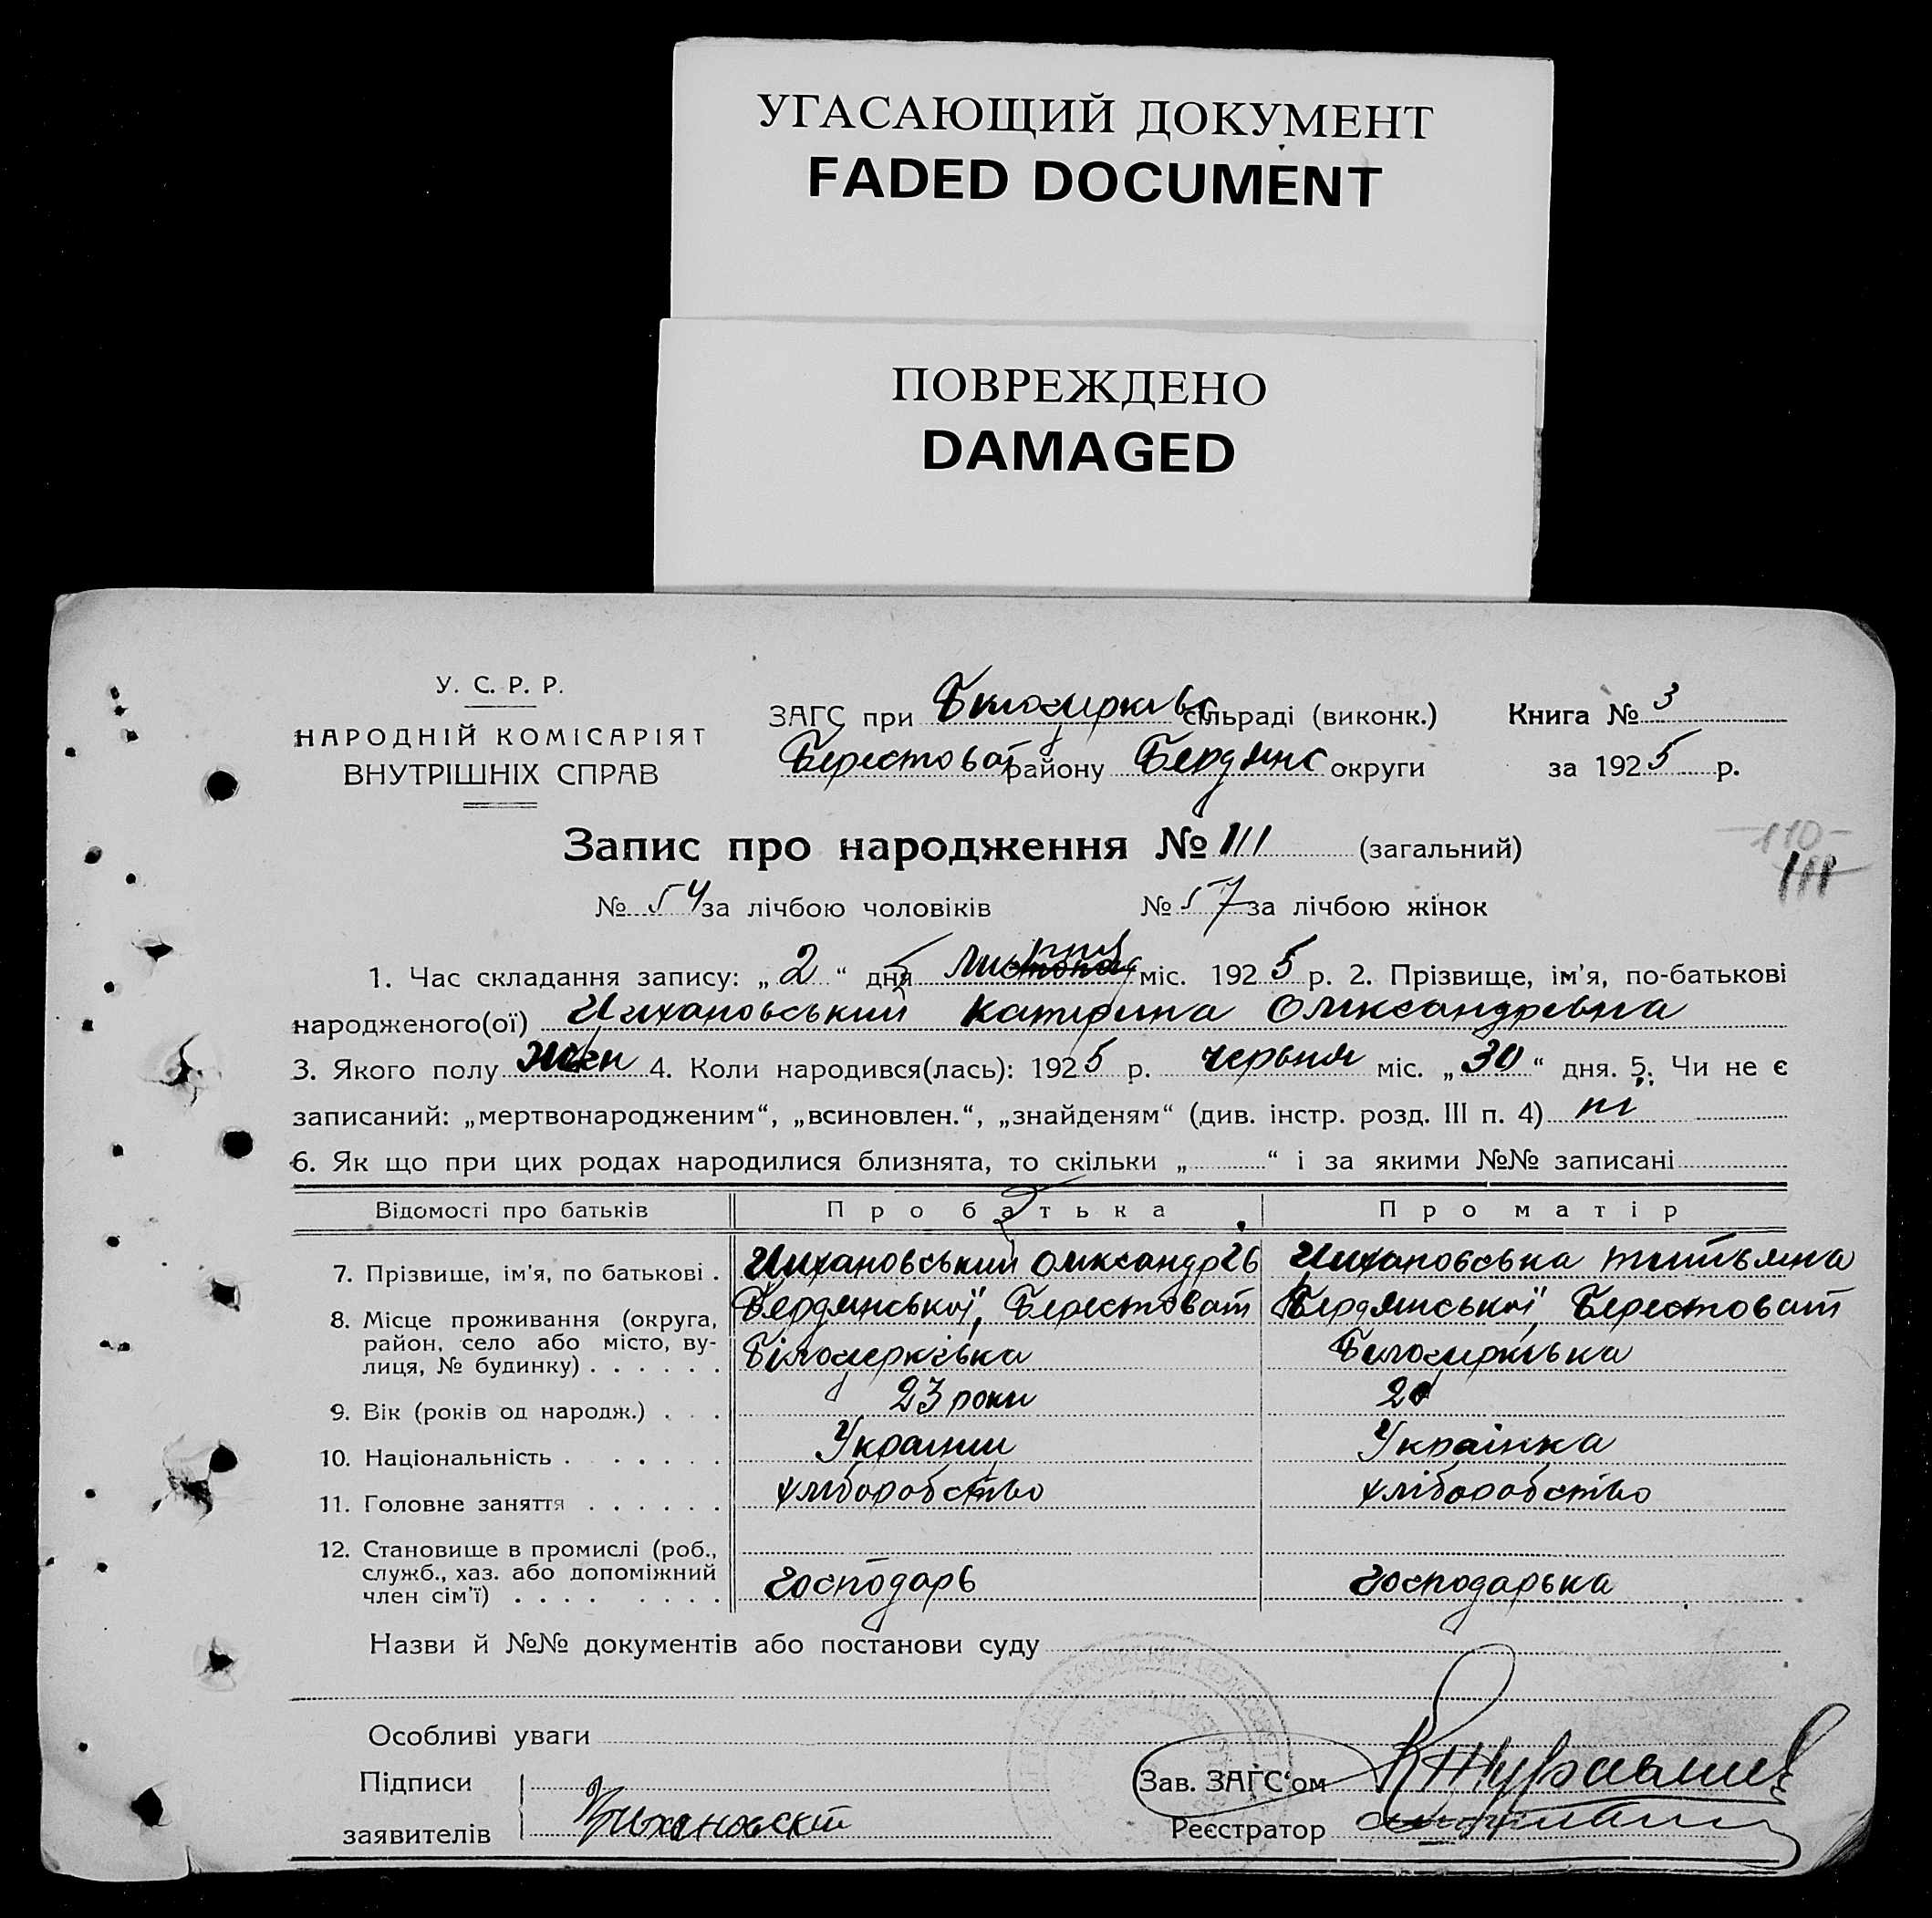 УГАСАЮЩИЙ ДОКУМЕНТ
FADED DOCUMENT
ПОВРЕЖДЕНО
DAMAGED
У. С. Р. Р.
НАРОДНІЙ КОМІСАРІЯТ
ВНУТРІШНІХ СПРАВ
ЗАГС при Білоцерківс сільраді (виконк.)
Берестоват району Бердянс округи
Книга № 3
за 1925 р.
Запис про народження № 111 (загальний)
110
111
№ 54 за лічбою чоловіків № 57 за лічбою жінок
1. Час складання запису: „2“ дня липня міс. 1925 р. 2. Прізвище, ім'я, по-батькові
народженого(ої) Цихановський Катерина Олександревна
3. Якого полу жен 4. Коли народився(лась): 1925 р. червня міс. „30“ дня. 5. Чи не є
записаний: „мертвонародженим“, „всиновлен.“, „знайденям“ (див. інстр. розд. III п. 4) ні
6. Як що при цих родах народилися близнята, то скільки „ “ і за якими №№ записані
Відомості про батьків Про батька Про матір
7. Прізвище, ім'я, по батькові . Цихановський Олександрів Цихановська Титьяна
8. Місце проживання (округа, район, село або місто, вулиця, № будинку) Бердянської, Берестоват Бердянської Берестоват
Білоцерківка Билоцирківка
9. Вік (років од народж.) . . . 23 роки 20
10. Національність . Украинци Українка
11. Головне заняття хліборобство хліборобство
12. Становище в промислі (роб., служб., хаз. або допоміжний член сім'ї) господарь господарька
Назви й №№ документів або постанови суду
Особливі уваги
Підписи
заявителів Цихановскій
Зав. ЗАГС'ом К Журавлив
Реєстратор